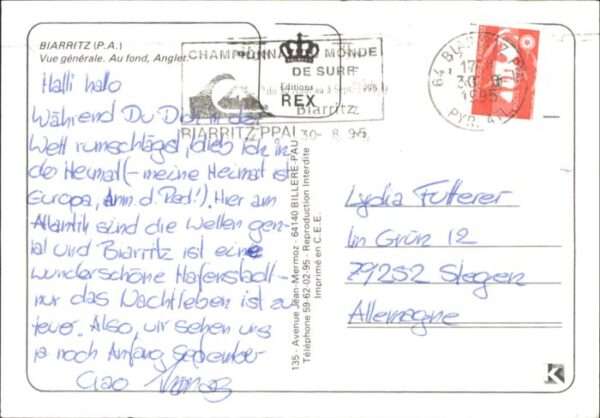 BIARRITZ (P.A.)
Vue générale. Au fond, Anglet.
CHAMPIONNAT MONDE
DE SURF
Editions
REX
Biarritz
BIARRITZ PPAL 30-8-95
64 BIARRITZ PPAL
17
30-8
1995
PYR. ATL
Halli hallo
Während Du Dich in der
Welt rumschlägst, blieb ich in
der Heimat (- meine Heimat ist
Europa, Anm. d. Red.!). Hier am
Atlantik sind die Wellen gen-
ial und Biarritz ist eine
wunderschöne Hafenstadt -
nur das Nachtleben ist zu
teuer. Also, wir sehen uns
ja noch Anfang September
Ciao
135 - Avenue Jean-Mermoz - 64140 BILLERE-PAU
Téléphone 59-62-02-95 - Reproduction Interdite
Imprimé en C.E.E.
Lydia Futterer
Im Grün 12
79252 Stegen
Allemagne
K